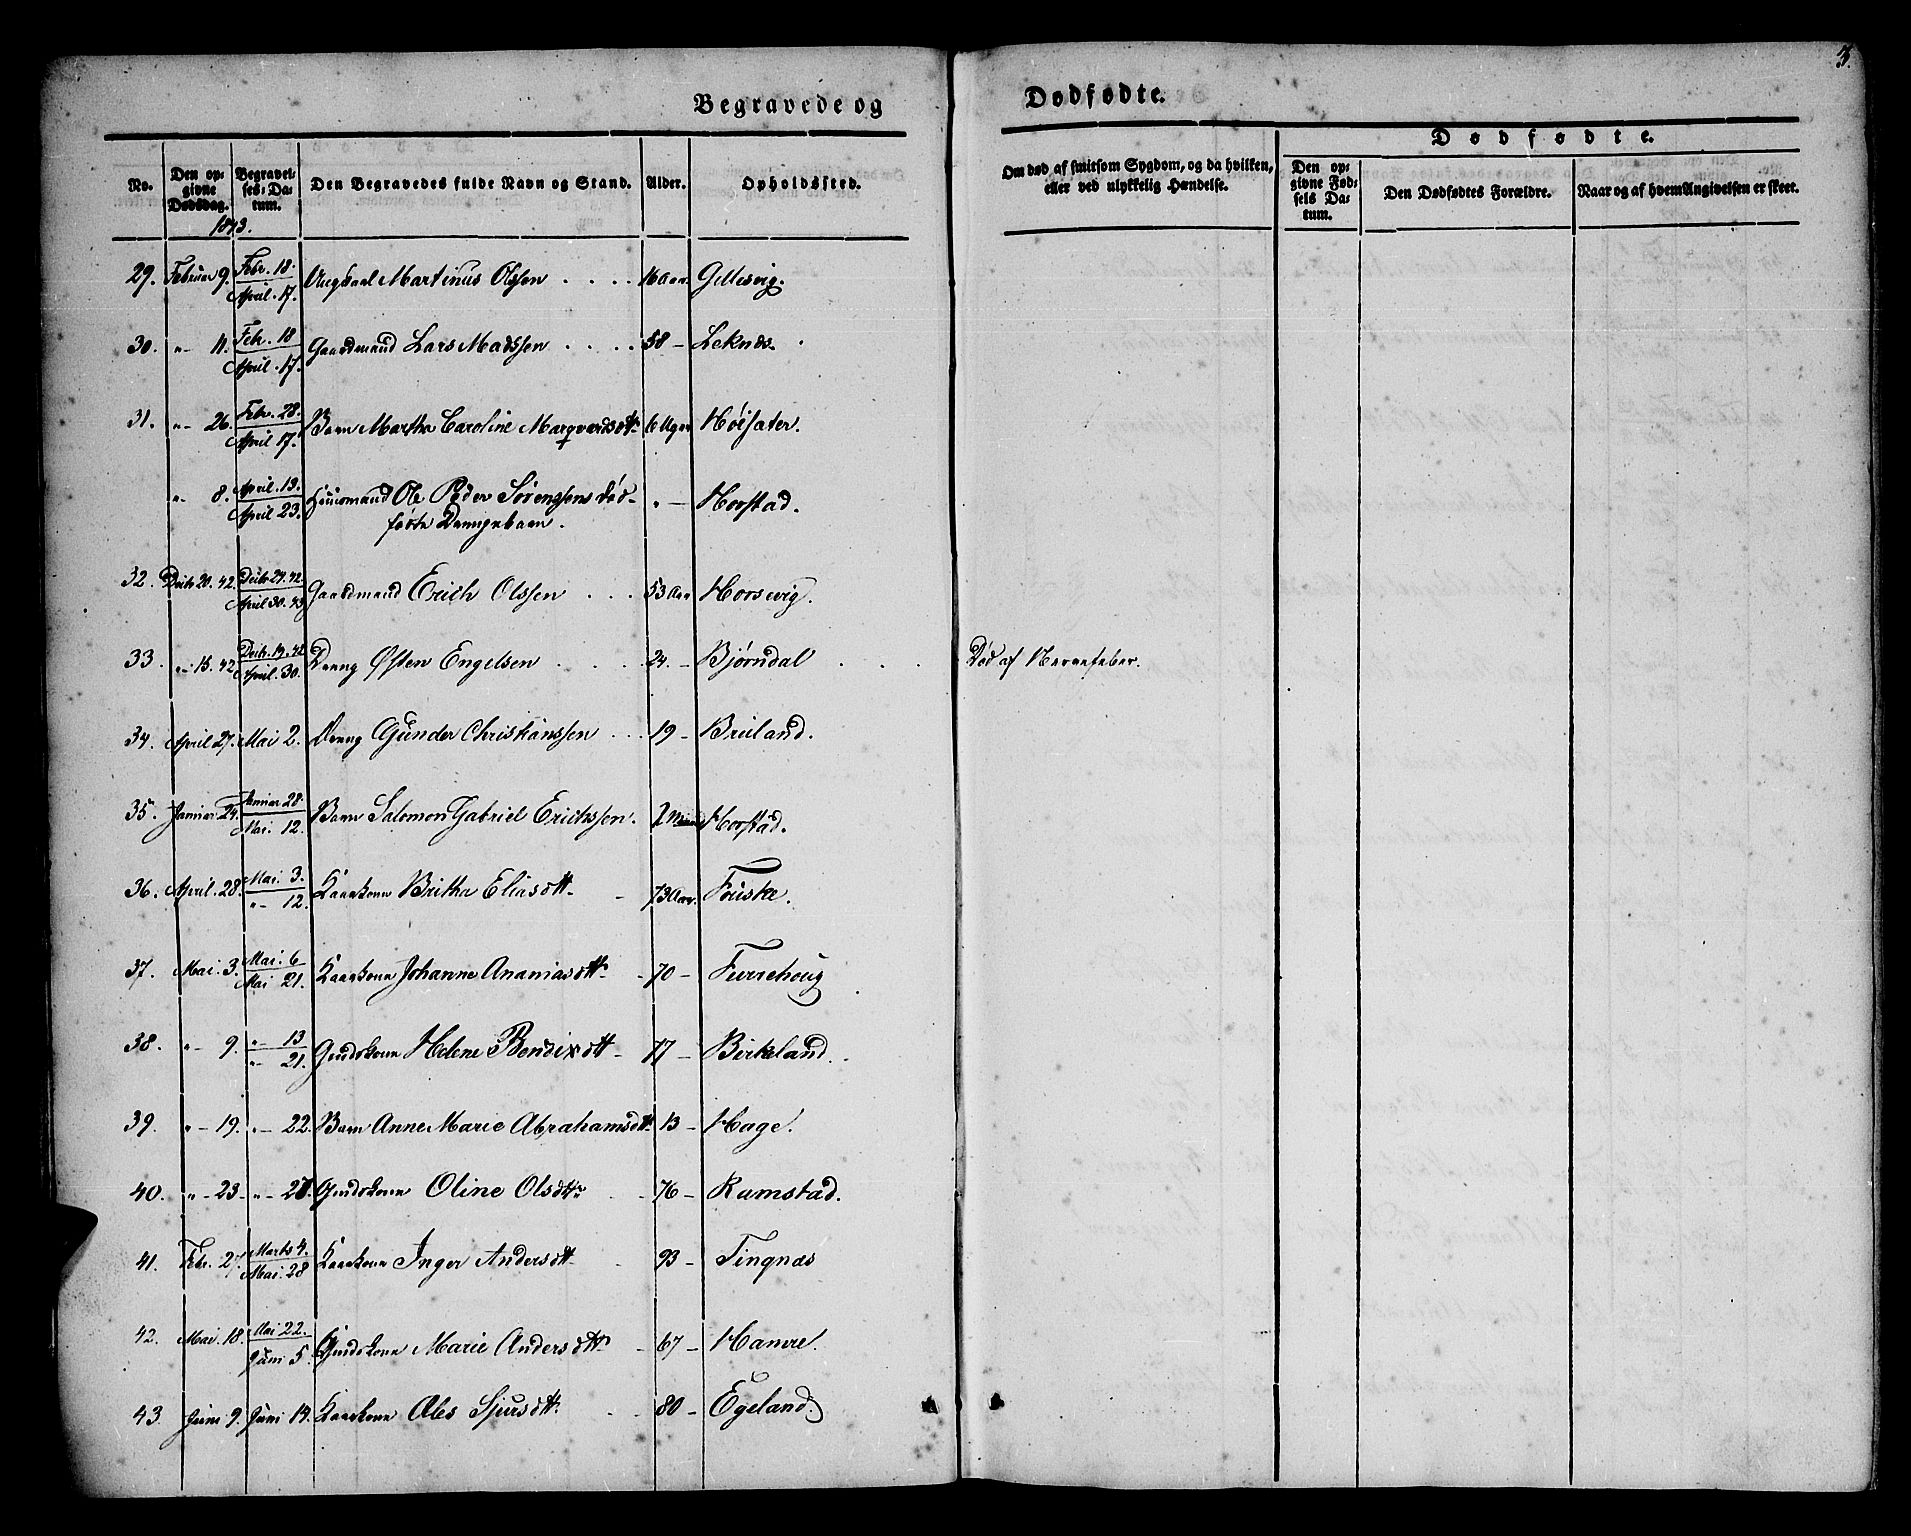 3.
Begravede og Dødfødte.
No. Den opgivne Dødsdag. Begravelses-Datum. Den Begravedes fulde Navn og Stand. Alder. Opholdssted. Om død af smitsom Sygdom, og da hvilken, eller ved ulykkelig Hændelse. Dødfødte. Den opgivne Fødsels Datum. Den Dødfødtes Forældre. Naar og af hvem Angivelsen er skeet.
1843.
29. Februar 9. Febr. 18. April. 17. Ungkarl Martinus Olssen 16 Aar. Gillesvig.
30. " 11. Feb. 18 April. 17. Gaardmand Lars Madssen 58 - Leknæs.
31. " 26. Febr. 28. April 17. Barn Martha Caroline Marqvardsdtt. 6 Uger Høisæter.
" 8. April. 19. April 23. Huusmand Ole Peder Sørenssens død-
fødte Drengebarn. " - Horstad.
32. Decbr 20. 42. Decbr 24. 42. April 30. 43 Gaardmand Erich Olssen 53 Aar Horsvig.
33. " 15. 42. Decbr. 19. 42 April. 30. Dreng Østen Engelsen 24. - Bjørndal Død af Nervefeber.
34. April 27. Mai 2. Dreng Gunder Christianssen 19 - Bruland.
35. Januar 24. Januar 28. Mai. 12. Barn Salomon Gabriel Erichssen. 2 Horstad.
36. April. 28. Mai. 3. " 12. Kaarkone Britha Eliasdtt. 73 Aar. Fouske.
37. Mai. 3. Mai. 6 Mai 21. Kaarkone Johanne Ananiasdtt. 70 - Furrehoug
38. " 9. " 13 " 21. Huuskone Helene Bendixdtt. 77 - Birkeland.
39. " 19. " 22. Barn Anne Marie Abrahamsdtt. 13 - Hage.
40. " 23 " 28. Oline Olsdtt. 76 - Ramstad.
41. Febr. 27. Marts 4. Mai. 28 Kaarkone Inger Andersdtt. 93 - Tingnæs
42. Mai. 18. Mai 22. Juni 5. Marie Andersdtt. 67 - Hamre.
43. Juni 9. Juni 14. Kaarkone Ales Sjursdtt. 80 - Egeland.